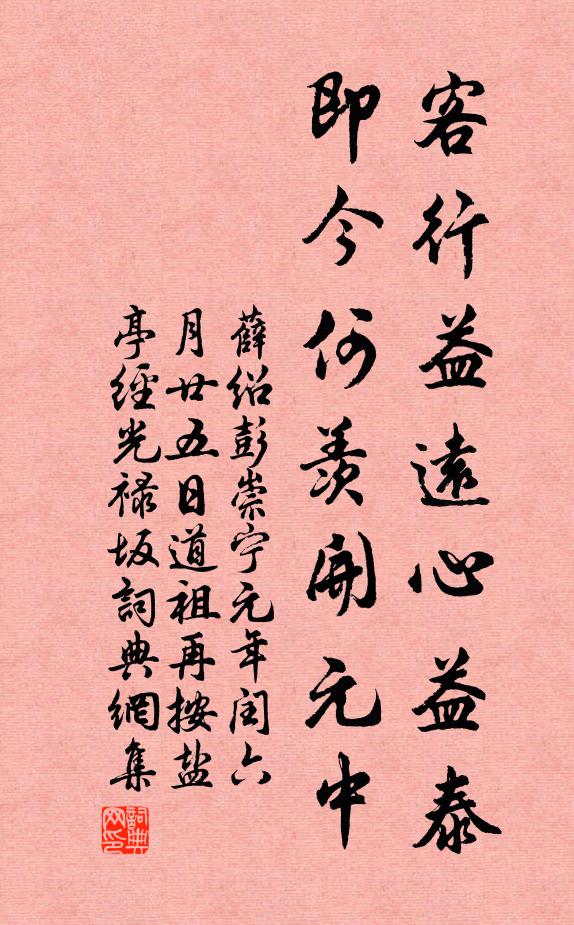 客行益遠心益泰
即今何羨開元中
薛绍彭崇宁元年闰六
月廿五日道祖再按盐
亭經光禄坂詞典網集
詞典网印